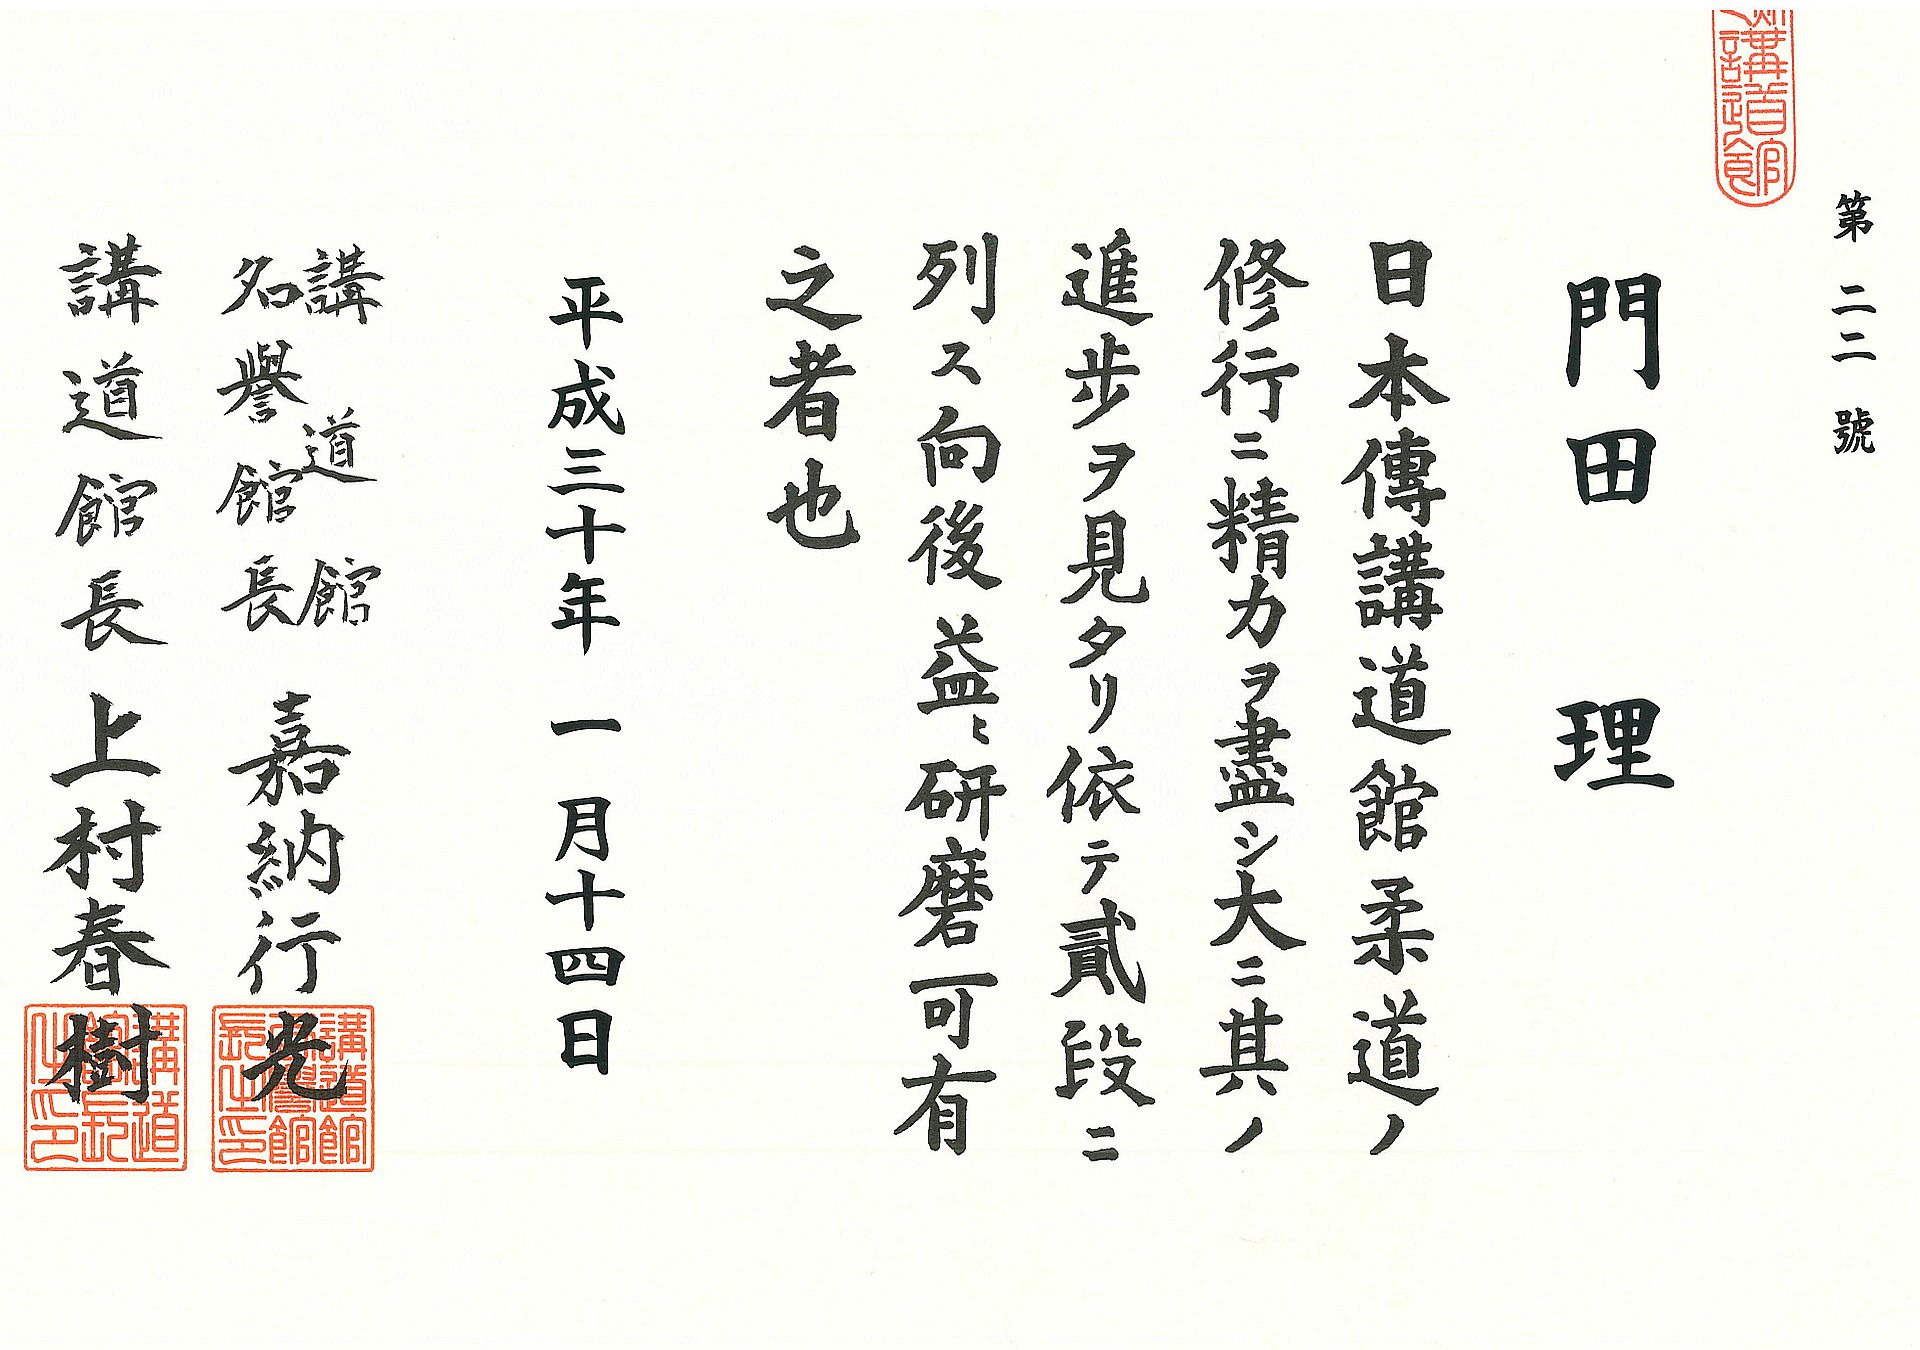 第二二號
講道館
門田 理
日本傳講道館柔道ノ
修行ニ精力ヲ盡シ大ニ其ノ
進歩ヲ見タリ依テ貳段ニ
列ス向後益〻研磨可有
之者也
平成三十年一月十四日
講道館
名譽館長 嘉納行光
講道館名譽館長之印
講道館長 上村春樹
講道館長之印